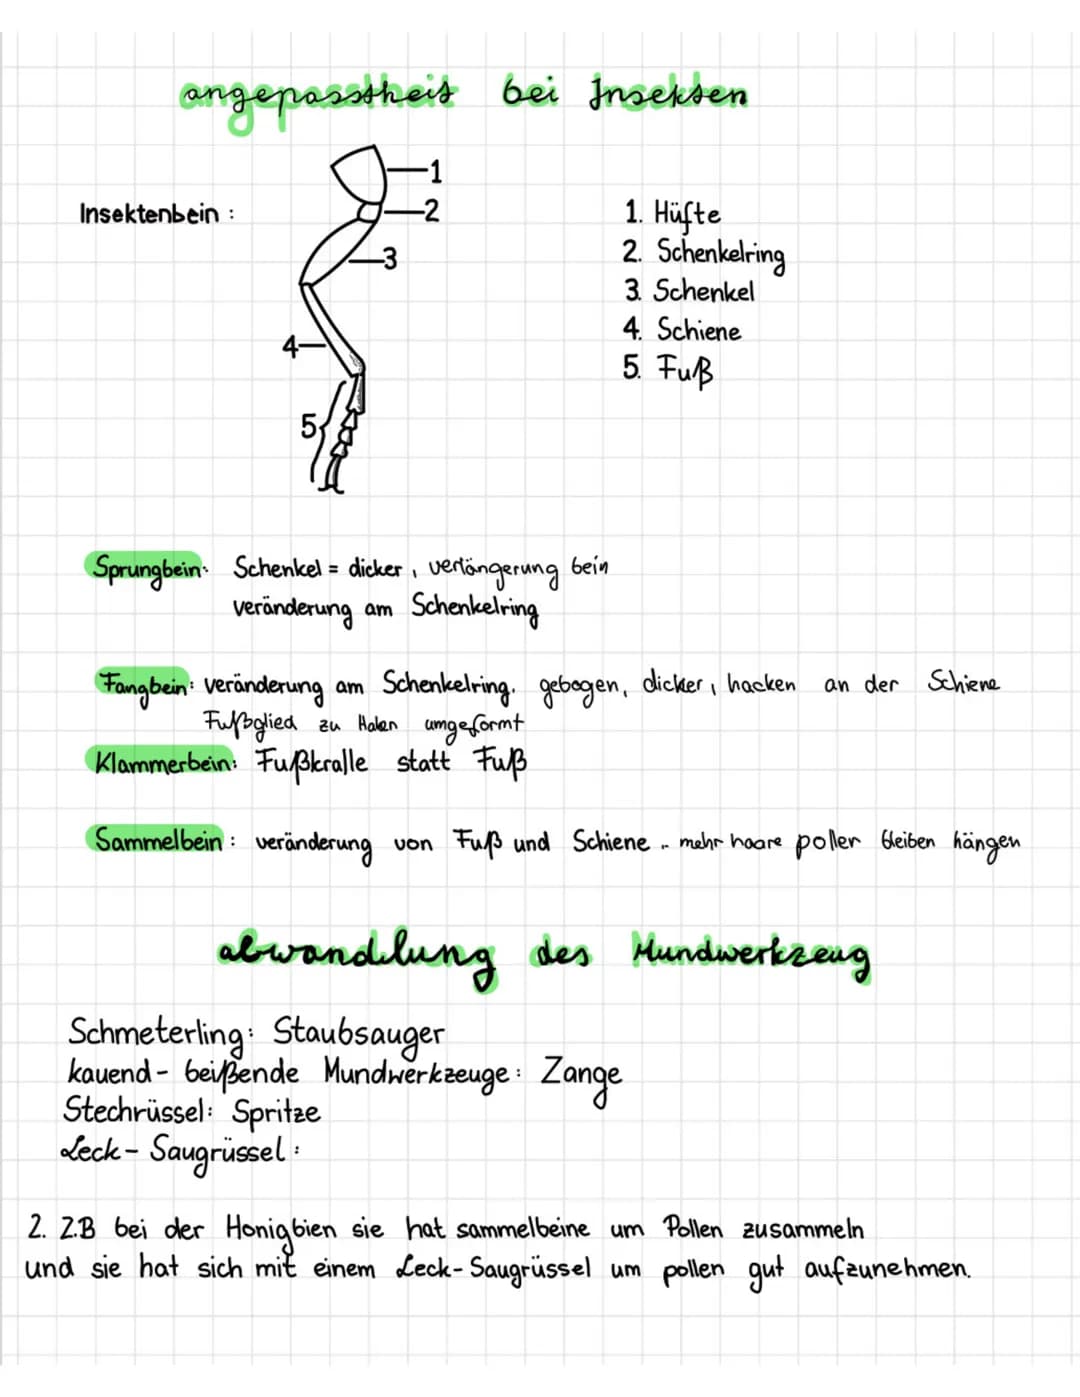 angepasstheit bei Insekten
1
Insektenbein :
2
3
4
5
1. Hüfte
2. Schenkelring
3. Schenkel
4. Schiene
5. Fuß
Sprungbein: Schenkel = dicker, verlängerung bein
veränderung am Schenkelring
Fangbein: veränderung am Schenkelring. gebogen, dicker, hacken an der Schiene
Fußglied zu Haken umgeformt
Klammerbein: Fußkralle statt Fuß
Sammelbein: veränderung von Fuß und Schiene .. mehr haare poller bleiben hängen
abwandlung des Mundwerkzeug
Schmeterling: Staubsauger
kauend- beißende Mundwerkzeuge: Zange
Stechrüssel: Spritze
Leck- Saugrüssel:
2. Z.B bei der Honigbien sie hat sammelbeine um Pollen zusammeln
und sie hat sich mit einem Leck-Saugrüssel um pollen gut aufzunehmen.